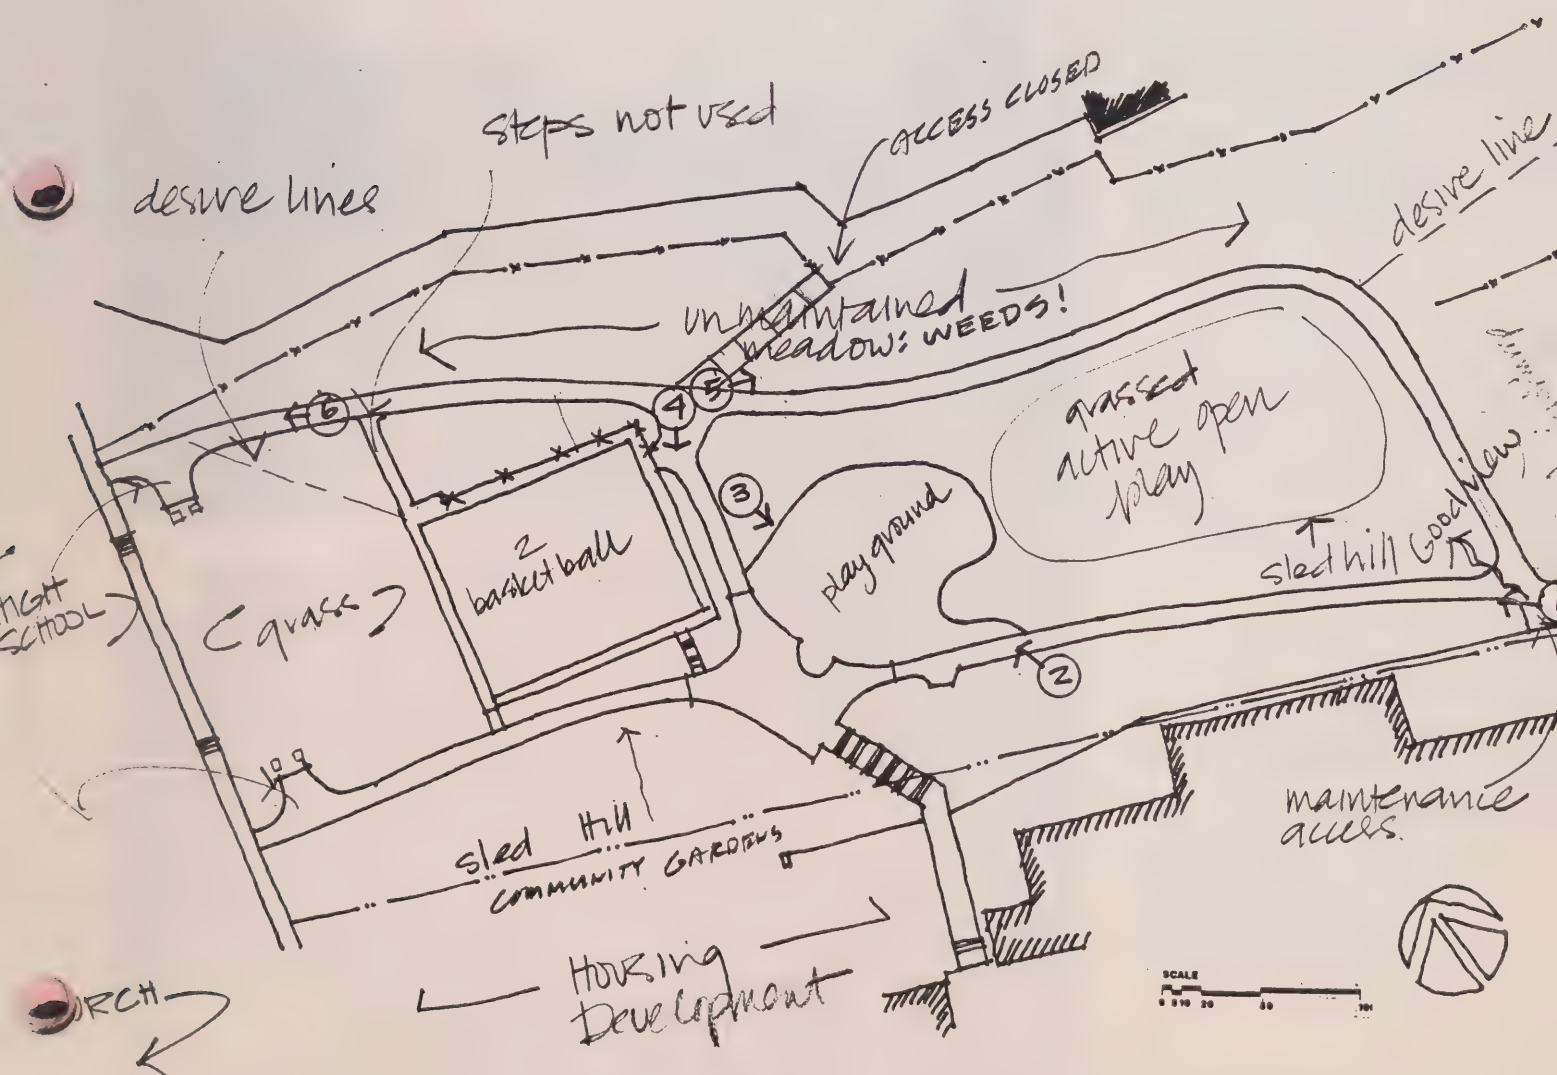 steps not used
ACCESS CLOSED
desire lines
desire line
unmaintained
meadow: WEEDS!
6
4
5
grassed
active open
play
3
playground
2
basketball
Good view,
sled hill
HIGH
SCHOOL
(grass)
2
maintenance
access.
sled Hill
COMMUNITY GARDENS
Housing
Development
URCH
SCALE
0 5 10 20 50 100